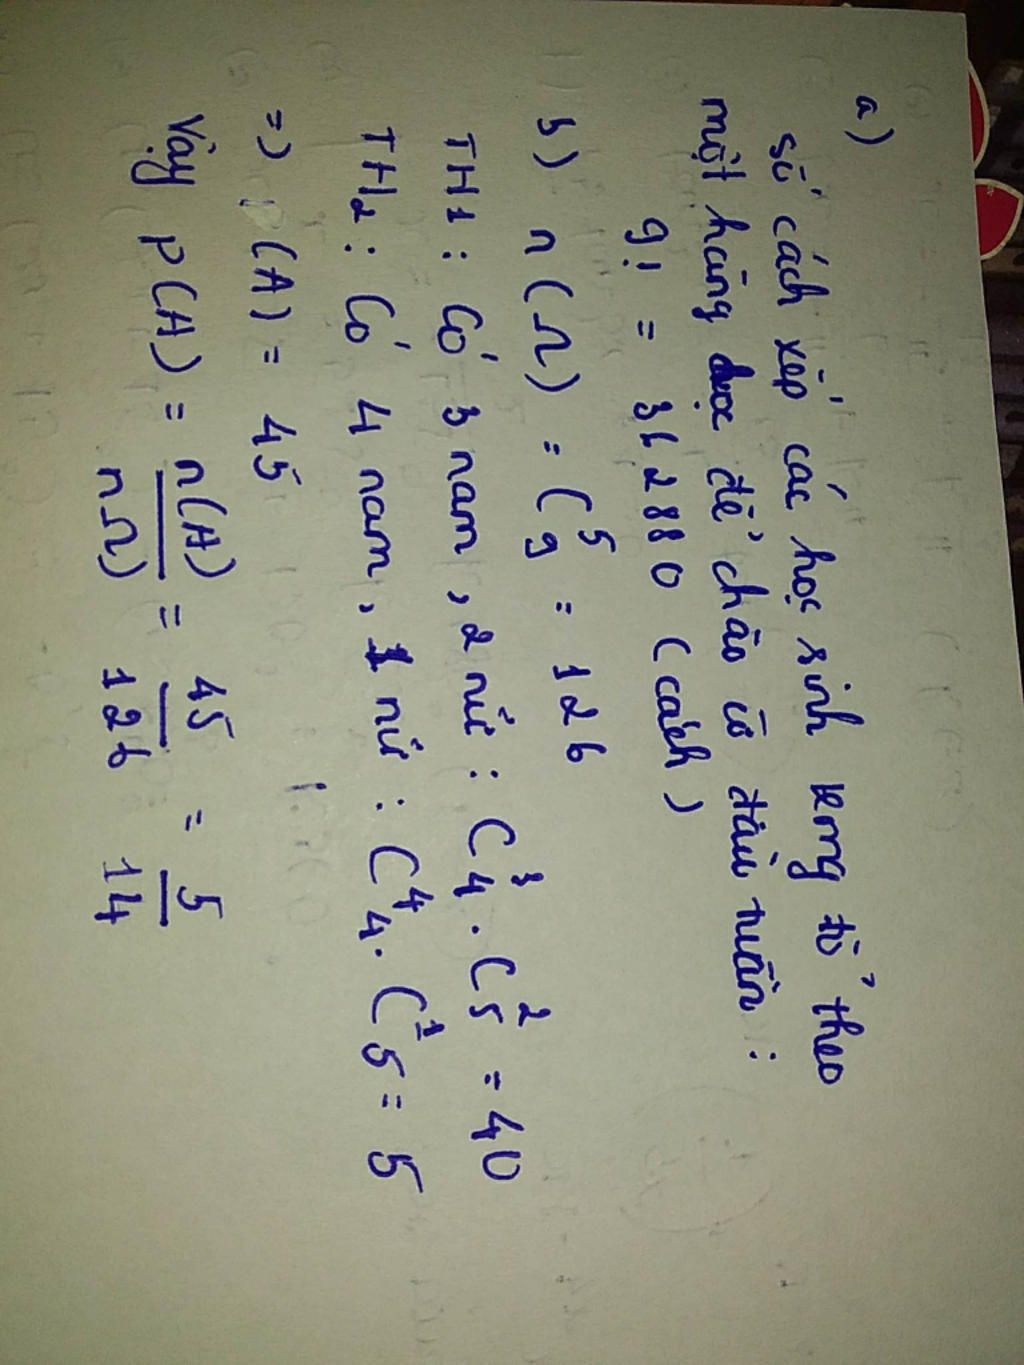 a)
số cách xếp các học sinh trong tổ theo
một hàng dọc để chào cờ đầu tuần :
9! = 362880 (cách)
b) n(Ω) = C⁵₉ = 126
TH1 : Có 3 nam, 2 nữ : C³₄ . C²₅ = 40
TH2 : Có 4 nam, 1 nữ : C⁴₄ . C¹₅ = 5
=> (A) = 45
Vậy P(A) = n(A)/nΩ) = 45/126 = 5/14